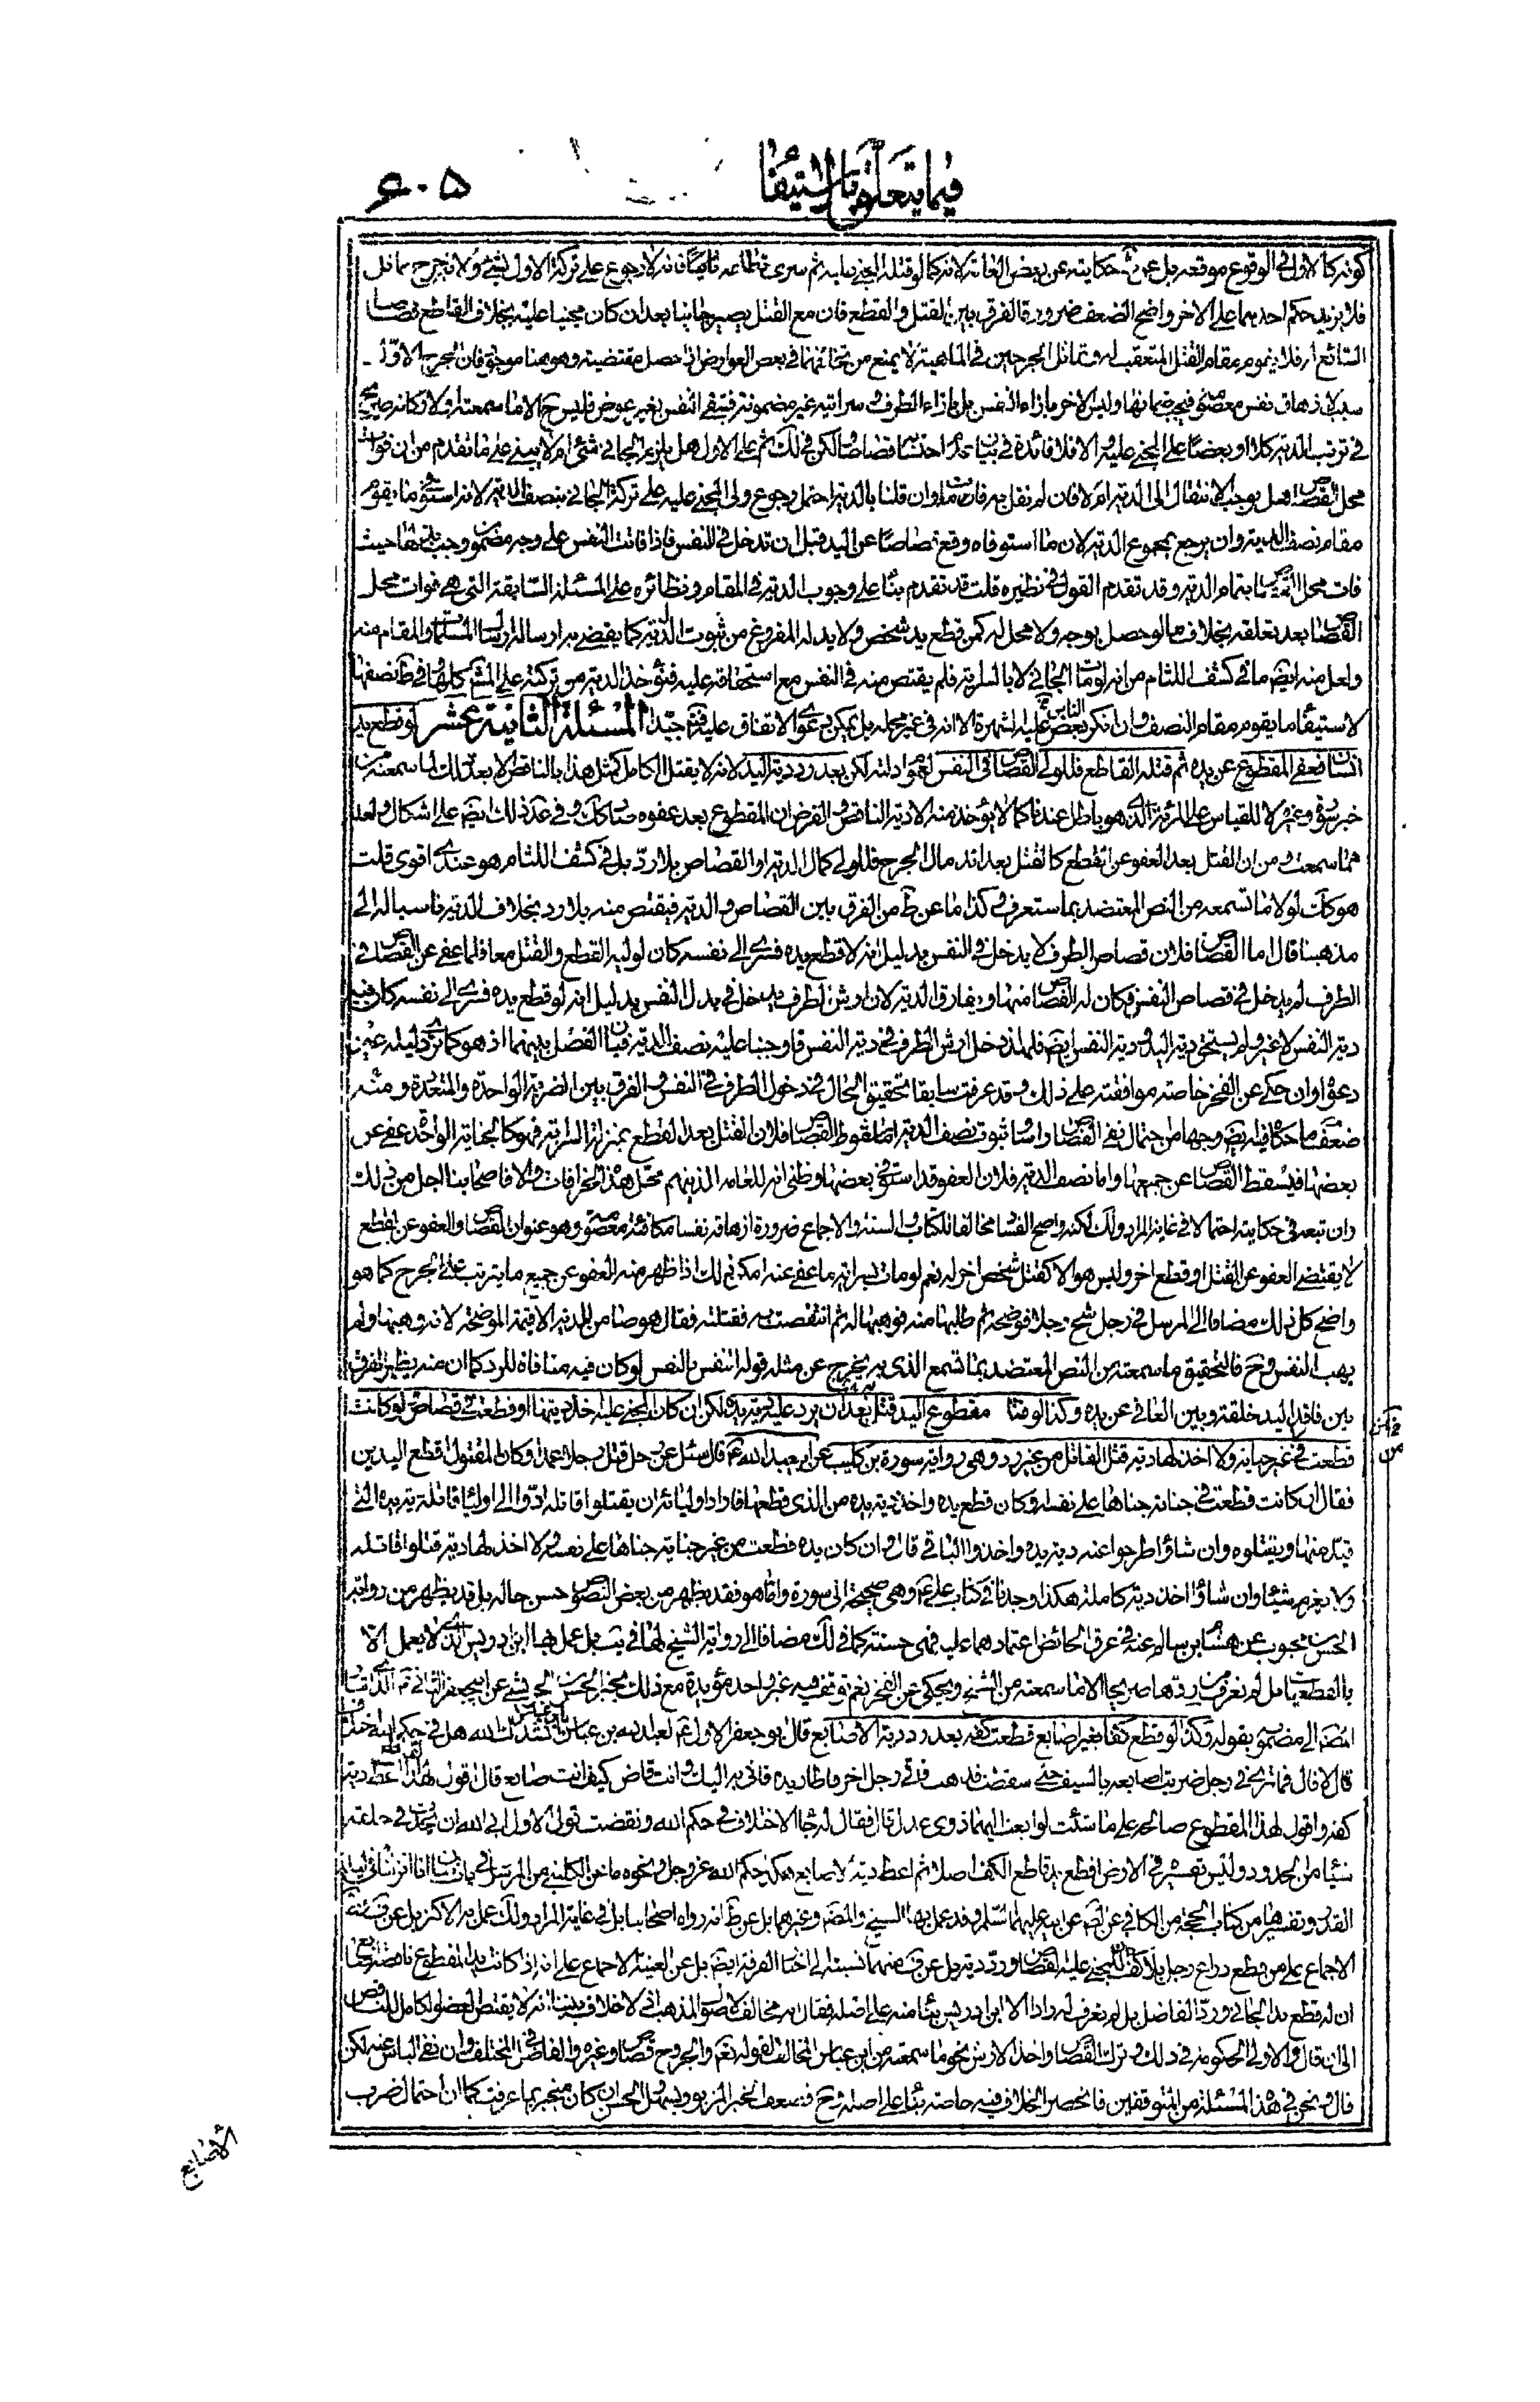 فيما يتعلق بالاستيفاء
۶۰۵
كونه كالاول في الوقوع موقعه بل عن حكايته عن بعض العامة لانه كما لو قتله المجني عليه ثم سرى فانه لا رجوع على تركة الاول بشئ ولانه جرح مماثل
فلا يزيد حكم احدهما على الاخر واضح الضعف ضرورة الفرق بين القتل والقطع فان مع القتل يصير جانيا بعد ان كان مجنيا عليه بخلاف القاطع قصاصا
فلا يقوم مقام القتل المتعقب له وتماثل الجرحين في الماهية لا يمنع من تخالفهما في بعض العوارض اذا حصل مقتضيه وهو هنا موجود فان الجرح الاول
سبب لازهاق نفس معصومة فيجب ضمانها وليس الاخر بازاء النفس بل بازاء الطرف وسرايته غير مضمونة فتبقى النفس بغير عوض فليس ح الا ما سمعته
في ترتب الدية كلا او بعضا على المجني عليه والا فلا فائدة في بيان احتسابه قصاصا ولكن في ذلك ثم على الاول هل يلزم الجاني شئ ام لا يبنى على ما تقدم من ان فوات
محل القصاص هل يوجب الانتقال الى الدية ام لا فان لم نقل به فات وان قلنا بالدية احتمل رجوع ولي المجني عليه على تركة الجاني بنصف الدية لانه استوفى ما يقوم
مقام نصف الدية وان يرجع بمجموع الدية لان ما استوفاه وقع قصاصا عن اليد قبل ان تدخل في النفس فاذا فاتت النفس على وجه مضمون وجب بدلها حيث
فات محل القصاص بتمام الدية وقد تقدم القول في نظيره قلت قد تقدم بناء على وجوب الدية في المقام ونظائره على المسئلة السابقة التي هي فوات محل
القصاص بعد تعلقه بخلاف ما لو حصل بوجه ولا محل له كمن قطع يد شخص ولا يد له المفروغ من ثبوت الدية كما يقضي به ارساله والمقام منه
ولعل منه ايضا ما في كشف اللثام من انه لو مات الجاني لا بالسراية فلم يقتص منه في النفس مع استحقاقه عليه فتؤخذ الدية من تركته على نصفها
لاستيفاء ما يقوم مقام النصف وان انكر بعض الناس عليه اشد الا انه في غير محله بل يمكن دعوى الاتفاق عليه فتأمل جيدا المسئلة الثانية عشر لو قطع يد
انسان فعفى المقطوع عن يده ثم قتله القاطع فللولي القصاص في النفس لعموم ادلته لكن بعد رد دية اليد لانه لا يقتل الكامل كمثل هذا بالناقص الا بعد ذلك لما سمعته من
خبر سورة وغيره لا للقياس على المرئة الذي هو باطل عندنا كما لا يؤخذ منه الا دية الناقص والفرض ان المقطوع بعد عفوه صار كك وفي عد ذلك ايضا على اشكال ولعله
مما سمعت ومن ان القتل بعد العفو عن القطع كالقتل بعد اندمال الجرح فللولي كمال الدية او القصاص بلا رد بل في كشف اللثام هو عندي اقوى قلت
هو كك لولا ما تسمعه من النص المعتضد بما ستعرف وكذا ما عن ط من الفرق بين القصاص والدية فيقتص منه بلا رد بخلاف الدية ناسبا له الى
مذهبنا قال اما القصاص فلان قصاص الطرف لا يدخل في النفس بدليل انه لو قطع يده فسرى الى نفسه كان لوليه القطع والقتل معا فلما عفى عن القصاص في
الطرف لم يدخل في قصاص النفس فكان له القصاص منها ويفارق الدية لان ارش الطرف يدخل في بدل النفس بدليل انه لو قطع يده فسرى الى نفسه كان فيه
دية النفس لا غير ولم يستحق دية اليد ودية النفس ايضا فلهذا دخل ارش الطرف في دية النفس فاوجبنا عليه نصف الدية فبان الفصل بينهما اذ هو كما ترى دليله عين
دعواه وان حكى عن الفخر خاصة موافقته على ذلك وقد عرفت سابقا تحقيق الحال في دخول الطرف في النفس والفرق بين الضربة الواحدة والمتعددة ومنه
ضعف ما حكاه فيه ايضا وجها من احتمال نفي القصاص واسا وثبوت نصف الدية اما سقوط القصاص فلان القتل بعد القطع بمنزلة السراية فهو كالجناية الواحدة عفى عن
بعضها فيسقط القصاص عن جميعها واما نصف الدية فلان العفو قد استوفى بعضها وظني انه للعامة الذينهم محل هذه الخرافات والا فاصحابنا اجل من ذلك
وان تبعه في حكايته احتمالا في غاية المراد ولكنه واضح الفساد مخالف للكتاب والسنة والاجماع ضرورة ازهاقه نفسا مكافئة معصومة وهو عنوان القصاص والعفو عن القطع
لا يقتضي العفو عن القتل او قطع اخر وليس هو الا كقتل شخص اخر له نعم لو مات بسراية ما عفى عنه امكن ذلك اذا ظهر منه العفو عن جميع ما يترتب على الجرح كما هو
واضح كل ذلك مضافا الى المرسل في رجل شج رجلا موضحة ثم طلبها منه فوهبها له ثم انتقضت به فقتلته فقال هو ضامن للدية الا قيمة الموضحة لانه وهبها ولم
يهب النفس وح فالتحقيق ما سمعته من النص المعتضد بما تسمع الذي به يخرج عن مثله قوله النفس بالنفس لو كان فيه منافاة للرد كما ان منه يظهر الفرق
بين فاقد اليد خلقة وبين العافي عن يده وكذا لو قتل مقطوع اليد قتل بعد ان يرد عليه دية يده لكن ان كان المجني عليه اخذ ديتها او قطعت في قصاص ولو كانت
قطعت في غير جناية ولا اخذ لها دية قتل القاتل من غير رد وهي رواية سورة بن كليب عن ابي عبد الله ع قال سئل عن رجل قتل رجلا عمدا وكان المقتول اقطع اليدين
فقال ان كانت قطعت في جناية جناها على نفسه او كان قطع يده واخذ دية يده من الذي قطعها فاراد اوليائه ان يقتلوا قاتله ادوا الى اولياء قاتله دية يده التي
قيد منها ويقتلوه وان شاؤا طرحوا عنه دية يده واخذوا الباقي قال وان كان يده قطعت من غير جناية جناها على نفسه ولا اخذ لها دية قتلوا قاتله
ولا يغرم شيئا وان شاؤا اخذوا دية كاملة هكذا وجدنا في كتاب علي ع وهي صحيحة الى سورة واما هو فقد يظهر من بعض النصوص حسن حاله بل قد يظهر من رواية
الحسن بن محبوب عن هشام بن سالم عنه في عرق الحائض اعتمادهما عليه فهي حسنة كما في لك مضافا الى رواية الشيخ لها في يب بل عمل بها ابن ادريس الذي لا يعمل الا
بالقطعيات بل لم نعرف من ردها صريحا الا ما سمعته من الشيخ ويحكى عن الفخر نعم توقف فيه غير واحد مؤيدة مع ذلك بخبر الحسن بن الحريش عن ابي جعفر الثاني ع الذي
المصنف الى مضمونه بقوله وكذا لو قطع كفا بغير اصابع قطعت كفه بعد رد دية الاصابع قال ابو جعفر الاول ع لعبد الله بن عباس انشدك الله هل في حكم الله اختلاف
قال لا قال فما ترى في رجل ضربت اصابعه بالسيف حتى سقطت فذهب فاتى رجل اخر فاطار يده فاتى به اليك وانت قاض كيف انت صانع قال اقول لهذا القاطع اعطه دية
كفه واقول لهذا المقطوع صالحه على ما شئت او ابعث اليهما ذوي عدل قال فقال له جاء الاختلاف في حكم الله ونقضت القول الاول ابى الله ان يحدث في خلقه
شيئا من الحدود وليس تفسيره في الارض اقطع يد قاطع الكف اصلا ثم اعطه دية الاصابع هكذا حكم الله عز وجل ونحوه ما عن الكليني من المرسل في باب شان انا انزلناه في ليلة
القدر وتفسيرها من كتاب الحجة من الكافي عن ابيه عليهما السلم وقد عمل بها الشيخ والمصنف وغيرهما بل عن ط انه رواه اصحابنا بل في غاية المراد ولك عمل به الاكثر بل عن
الاجماع على من قطع ذراع رجل بلا كف للمجني عليه القصاص ورد دية بل عن ف منهما نسبته الى اخبار الفرقة ايضا بل عن الغنية الاجماع على انه اذا كانت يد المقطوع ناقصة اصابع
ان له قطع يد الجاني ورد الفاضل بل لم نعرف له رادا الا ابن ادريس بناء منه على اصله فقال انه مخالف لاصول المذهب اذ لا خلاف بيننا انه لا يقتص العضو الكامل للناقص
الى ان قال والاولى الحكومة في ذلك وترك القصاص واخذ الارش نحو ما سمعته من ابن عباس المخالف لقوله تعالى والجروح قصاص وغيره والفاضل في المختلف وان نفى الباس عنه لكن
قال ونحن في هذه المسئلة من المتوقفين فانحصر الخلاف فيه خاصة بناء على اصله وح فضعف الخبر المزبور وبسهل الحسن ان كان منجبر بما عرفت كما ان احتمال ضرب
الاصابع